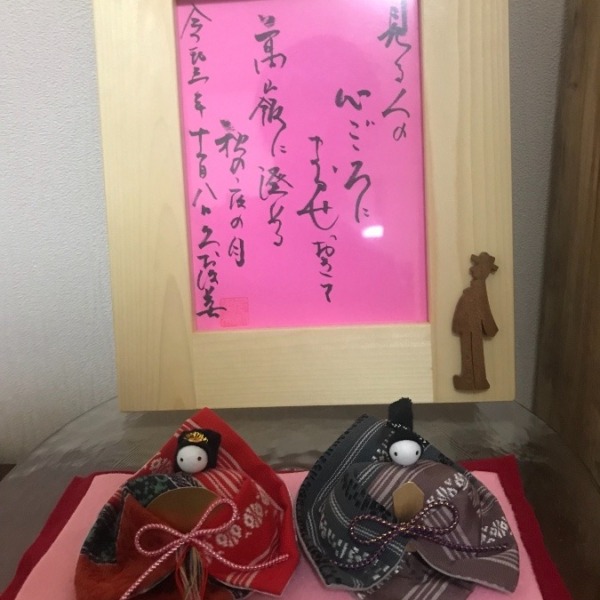 見る人の
心ごろに
まかせおきて
高嶺に澄める
秋の夜の月
令和三年十一月八日